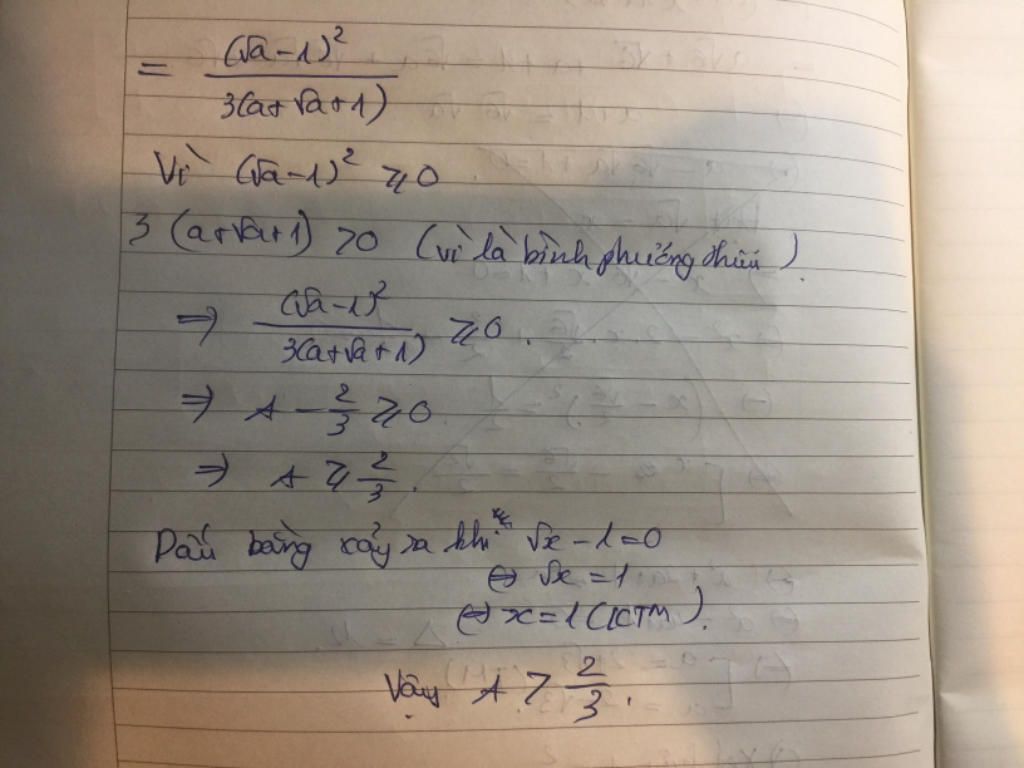 = (√a - 1)² / 3(a + √a + 1)
Vì (√a - 1)² ⩾ 0
3 (a + √a + 1) > 0 (vì là bình phương thiếu).
⇒ (√a - 1)² / 3(a + √a + 1) ⩾ 0.
⇒ A - 2/3 ⩾ 0
⇒ A ⩾ 2/3.
Dấu bằng xảy ra khi √x - 1 = 0
⇔ √x = 1
⇔ x = 1 (KTM).
Vậy A > 2/3.